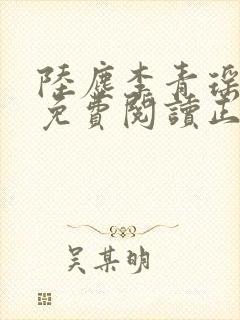 陸塵李青瑤
免費閱讀正
吴某明